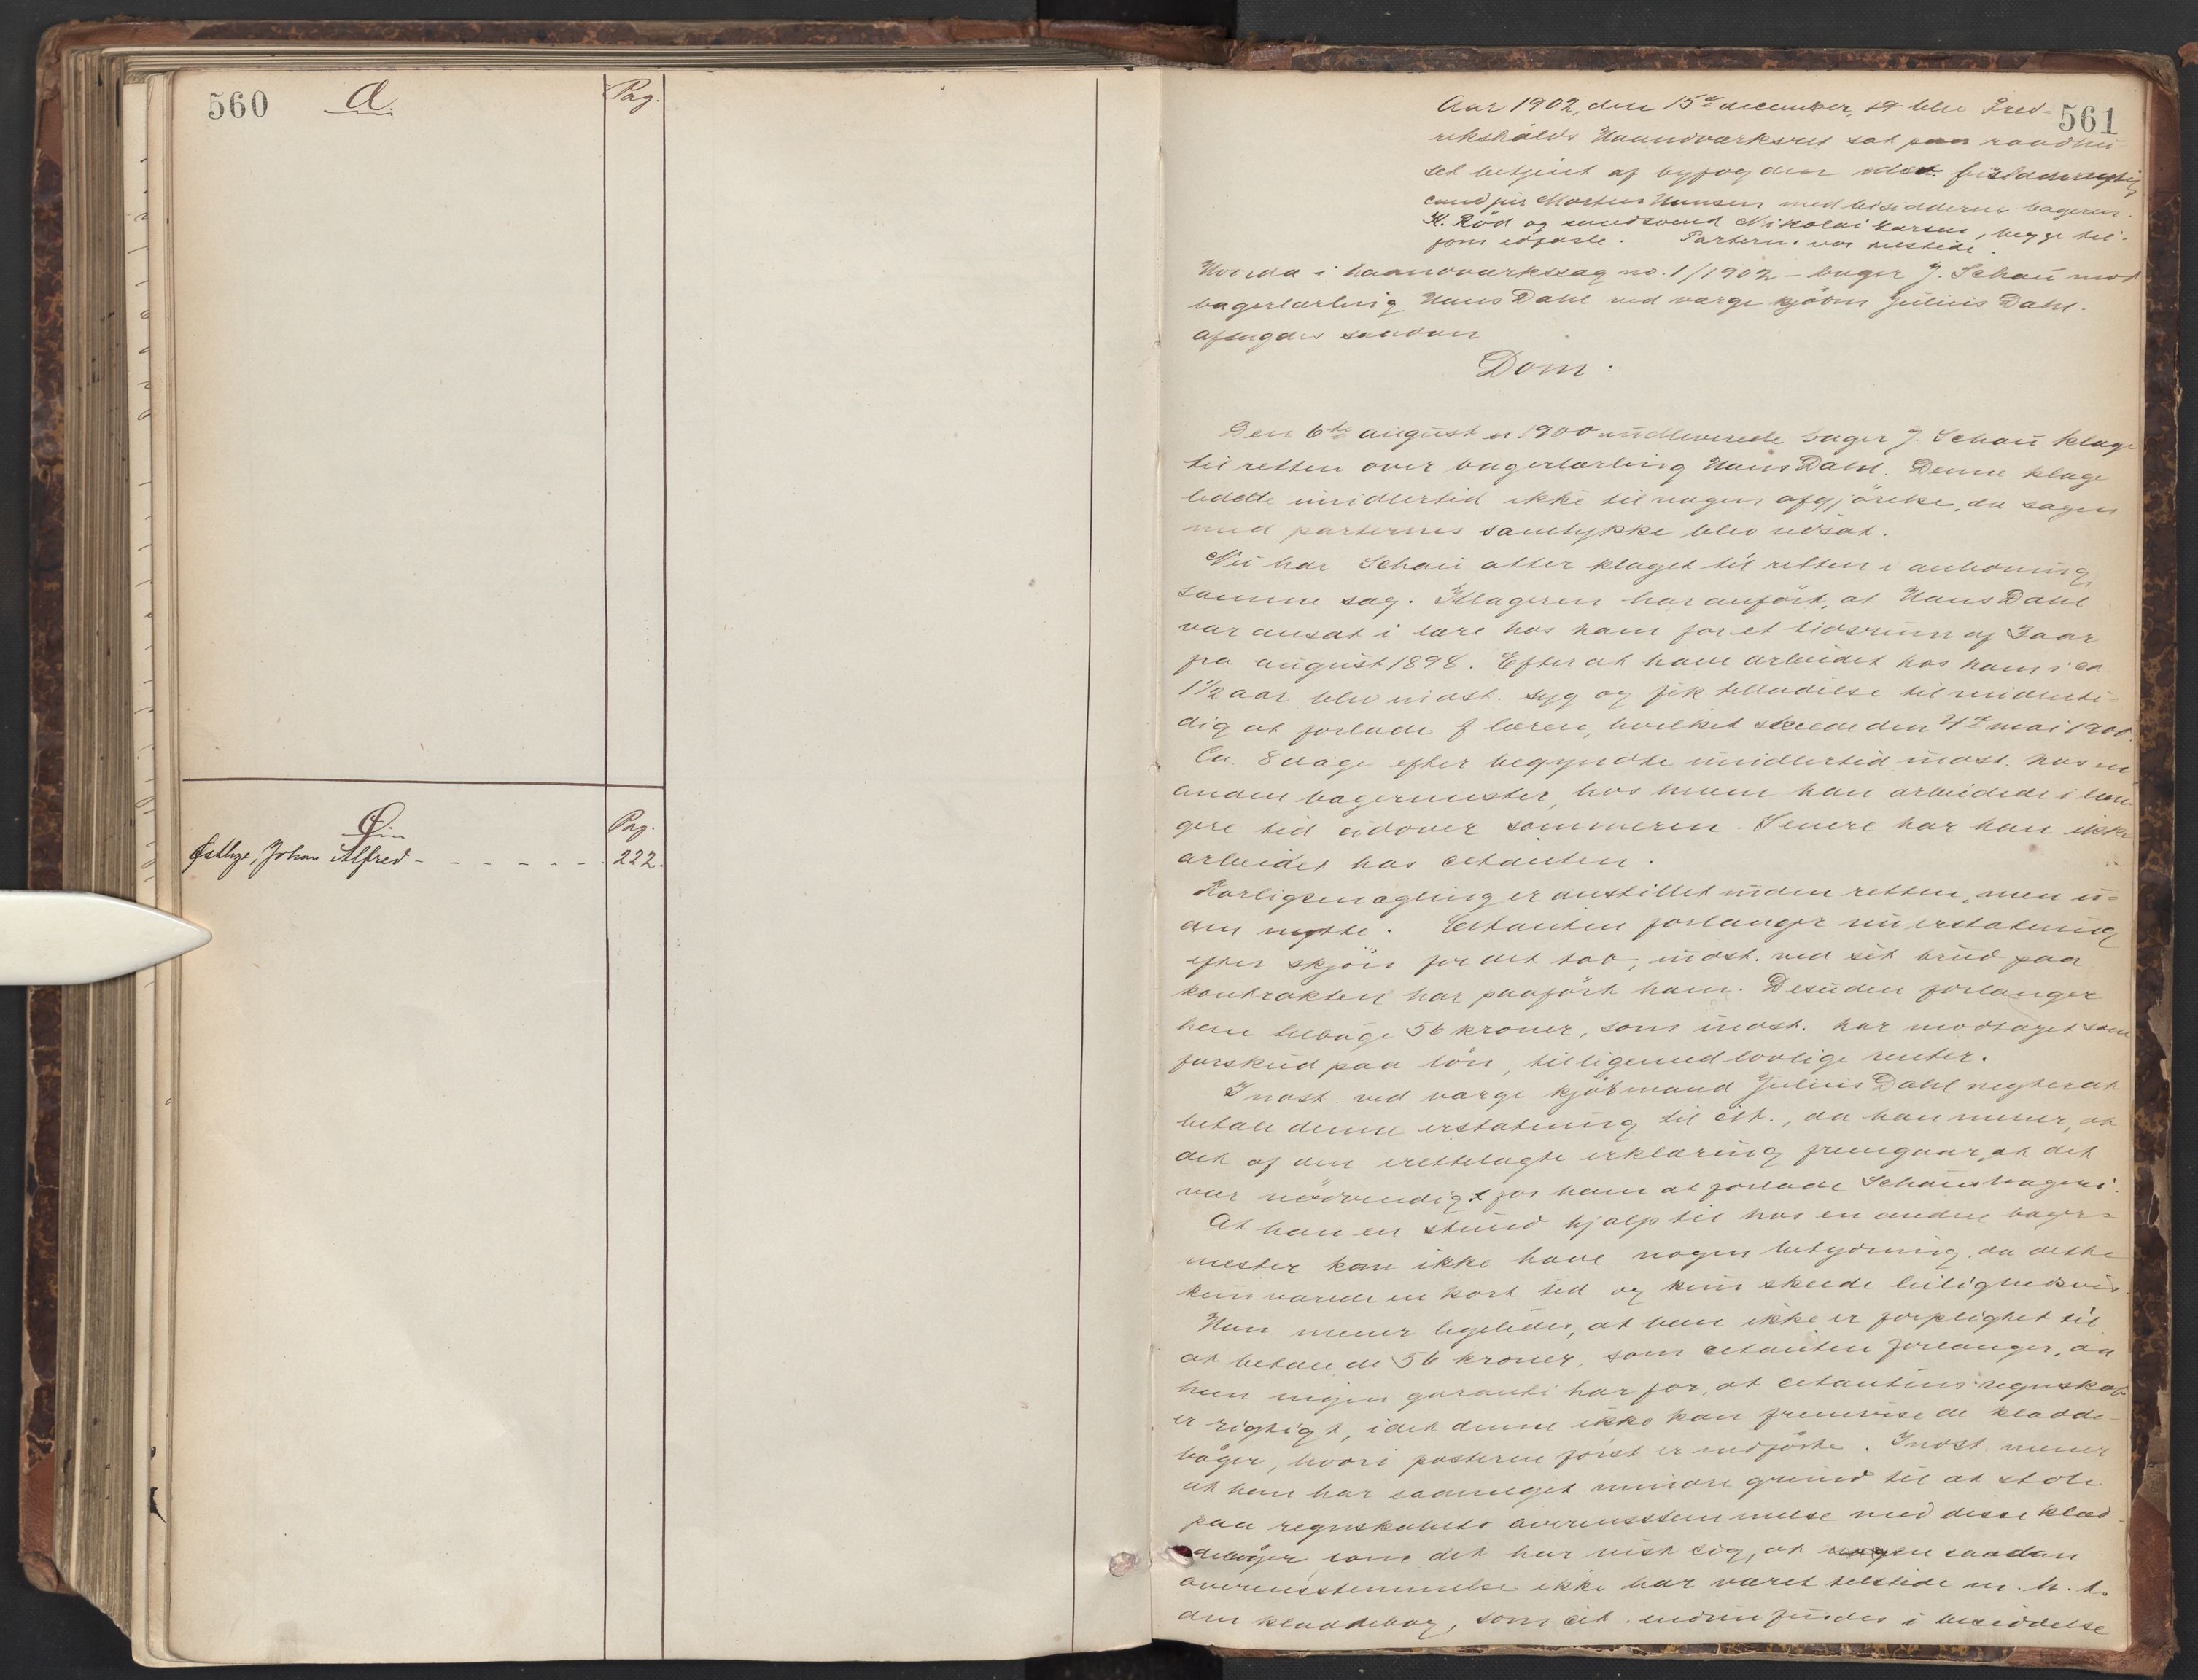 560 Æ. Pag.
Ø. Pag.
Østbye, Johan Alfred - - - - - - 222.
561
Aar 1902, den 15de december, blev Fred-
rikshalds Haandværksret sat paa raadhu-
set betjent af byfogden ved fuldmægtig
cand jur Morten Hansen med bisidderne bagerm.
K. Röd og Nikolai Larsen, begge til-
forn edfæste. Parterne var tilstede.
Hvorda i haandværkssag no. 1/1902 – bager J. Schau mod
bagerlærling Hans Dahl ved værge kjöbm Julius Dahl.
afsagdes saadan
Dom:
Den 6te august 1900 indleverede bager J. Schau klage
til retten over bagerlærling Hans Dahl. Denne klage
ledede imidlertid ikke til nogen afgjörelse, da sagen
med parternes samtykke blev udsat.
Nu har Schau atter klaget til retten i anledning
samme sag. Klageren har anfört, at Hans Dahl
var ansat i lære hos ham for et tidsrum af 3 aar
fra august 1898. Efter at have arbeidet hos ham i ca.
1½ aar blev indst. syg og fik tilladelse til midlerti-
dig at forlade læren, hvilket skede den 4de mai 1900.
Ca. 8 dage efter begyndte imidlertid indst. hos en
anden bagermester, hos hvem han arbeidede i læn-
gere tid udover sommeren. Senere har han ikke
arbeidet hos citanten.
Forligsmægling er anstillet inden retten, men u-
den nytte. Citanten forlanger nu erstatning
efter skjön for det tab, indst. ved sit brud paa
kontrakten har paafört ham. Desuden forlanger
han tilbage 56 kroner, som indst. har modtaget som
forskud paa lön, tilligemed lovlige renter.
Indst. ved værge kjöbmand Julius Dahl negter at
betale denne erstatning til cit., da han mener, at
det af den irettelagte erklæring fremgaar, at det
var nödvendigt for ham at forlade Schaus bageri.
At han en stund hjalp til hos en anden bager-
mester kan ikke have nogen betydning, da dette
kun varede en kort tid og kun skede leilighedsvis.
Han mener ligeledes, at han ikke er forpligtet til
at betale de 56 kroner, som citanten forlanger, da
han ingen garanti har for, at citantens regnskab
er rigtigt, idet denne ikke kan fremvise de kladde-
böger, hvori posterne först er indförte. Indst. mener
at han har saameget mindre grund til at stole
paa regnskabets overensstemmelse med disse klad-
deböger, som det har vist sig, at nogen saadan
overensstemmelse ikke har været tilstede m. h. t.
den kladdebog, som cit. endnu findes i besiddelse